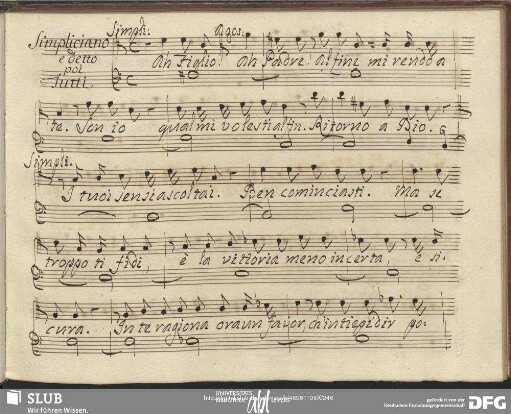 Simpl: Agos:
Simpliciano
e detto
poi
Tutti.
Ah Figlio! Ah Padre! al fine mi rendo a
te. Son io qual mi volesti al fin. Ritorno a Dio.
Simpl:
I tuoi sensi ascoltai. Ben cominciasti. Ma se
troppo ti fidi, è la vittoria meno incerta, e si-
cura. In te ragiona ora un favor, ch'intiepidir po-
SLUB
Wir führen Wissen.
DFG